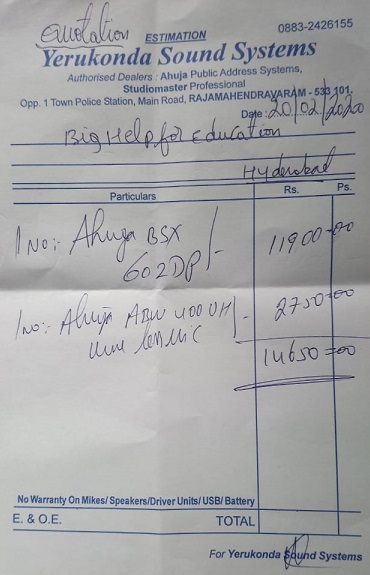 Quotation ESTIMATION 0883-2426155
Yerukonda Sound Systems
Authorised Dealers : Ahuja Public Address Systems,
Studiomaster Professional
Opp. 1 Town Police Station, Main Road, RAJAMAHENDRAVARAM - 533 101.
Date: 20/02/2020
Big Help for Education
Hyderabad
Particulars Rs. Ps.
1 No:- Ahuja BSX 11900=00
602DP/-
1 No:- Ahuja 400 UH/- 2750=00
Mic
14650=00
No Warranty On Mikes/ Speakers/Driver Units/ USB/ Battery
E. & O.E. TOTAL
For Yerukonda Sound Systems